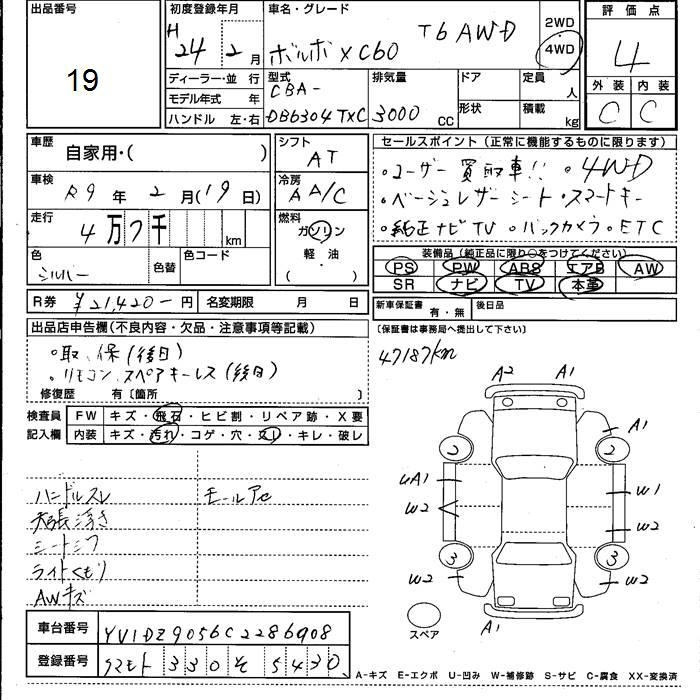 出品番号
19
初度登録年月
H 24 2月
車名・グレード
ボルボ XC60 T6 AWD
2WD
4WD
評価点
4
外装 内装
C C
ディーラー・並行
モデル年式 年
ハンドル 左・右
型式
CBA-
DB6304TXC
排気量
3000 CC
ドア
形状
定員
人
積載
kg
車歴
自家用・( )
車検
R9年 2月(19日)
走行
4万7千 km
色
シルバー
色替
色コード
シフト
AT
冷房
AA/C
燃料
ガソリン
軽・油
( )
セールスポイント(正常に機能するものに限ります)
・ユーザー買取車!! ・4WD
・ベージュレザーシート・スマートキー
・純正ナビTV ・バックカメラ・ETC
装備品(純正品に限り○をつけてください)
PS PW ABS エアB AW
SR ナビ TV 本革
R券 ¥21,420-円
名変期限 月 日
新車保証書 有・無
後日品
(保証書は事務局へ提出して下さい)
出品店申告欄(不良内容・欠品・注意事項等記載)
・取、保(後日)
・リモコン、スペアキーレス(後日)
修復歴 有〔箇所 〕
検査員
記入欄
FW キズ・飛石・ヒビ割・リペア跡・X要
内装 キズ・汚れ・コゲ・穴・スレ・キレ・破レ
ハンドルスレ
天張浮き
シートシワ
ライトくもり
AWキズ
モールアセ
47187km
A2 A1
A1
2 2
4A1
W1
W2
W2
3 3
W2
W2
スペア
A1
車台番号 YV1DZ9056C2286908
登録番号 クマモト 330 そ 5430
A-キズ E-エクボ U-凹み W-補修跡 S-サビ C-腐食 XX-変換済